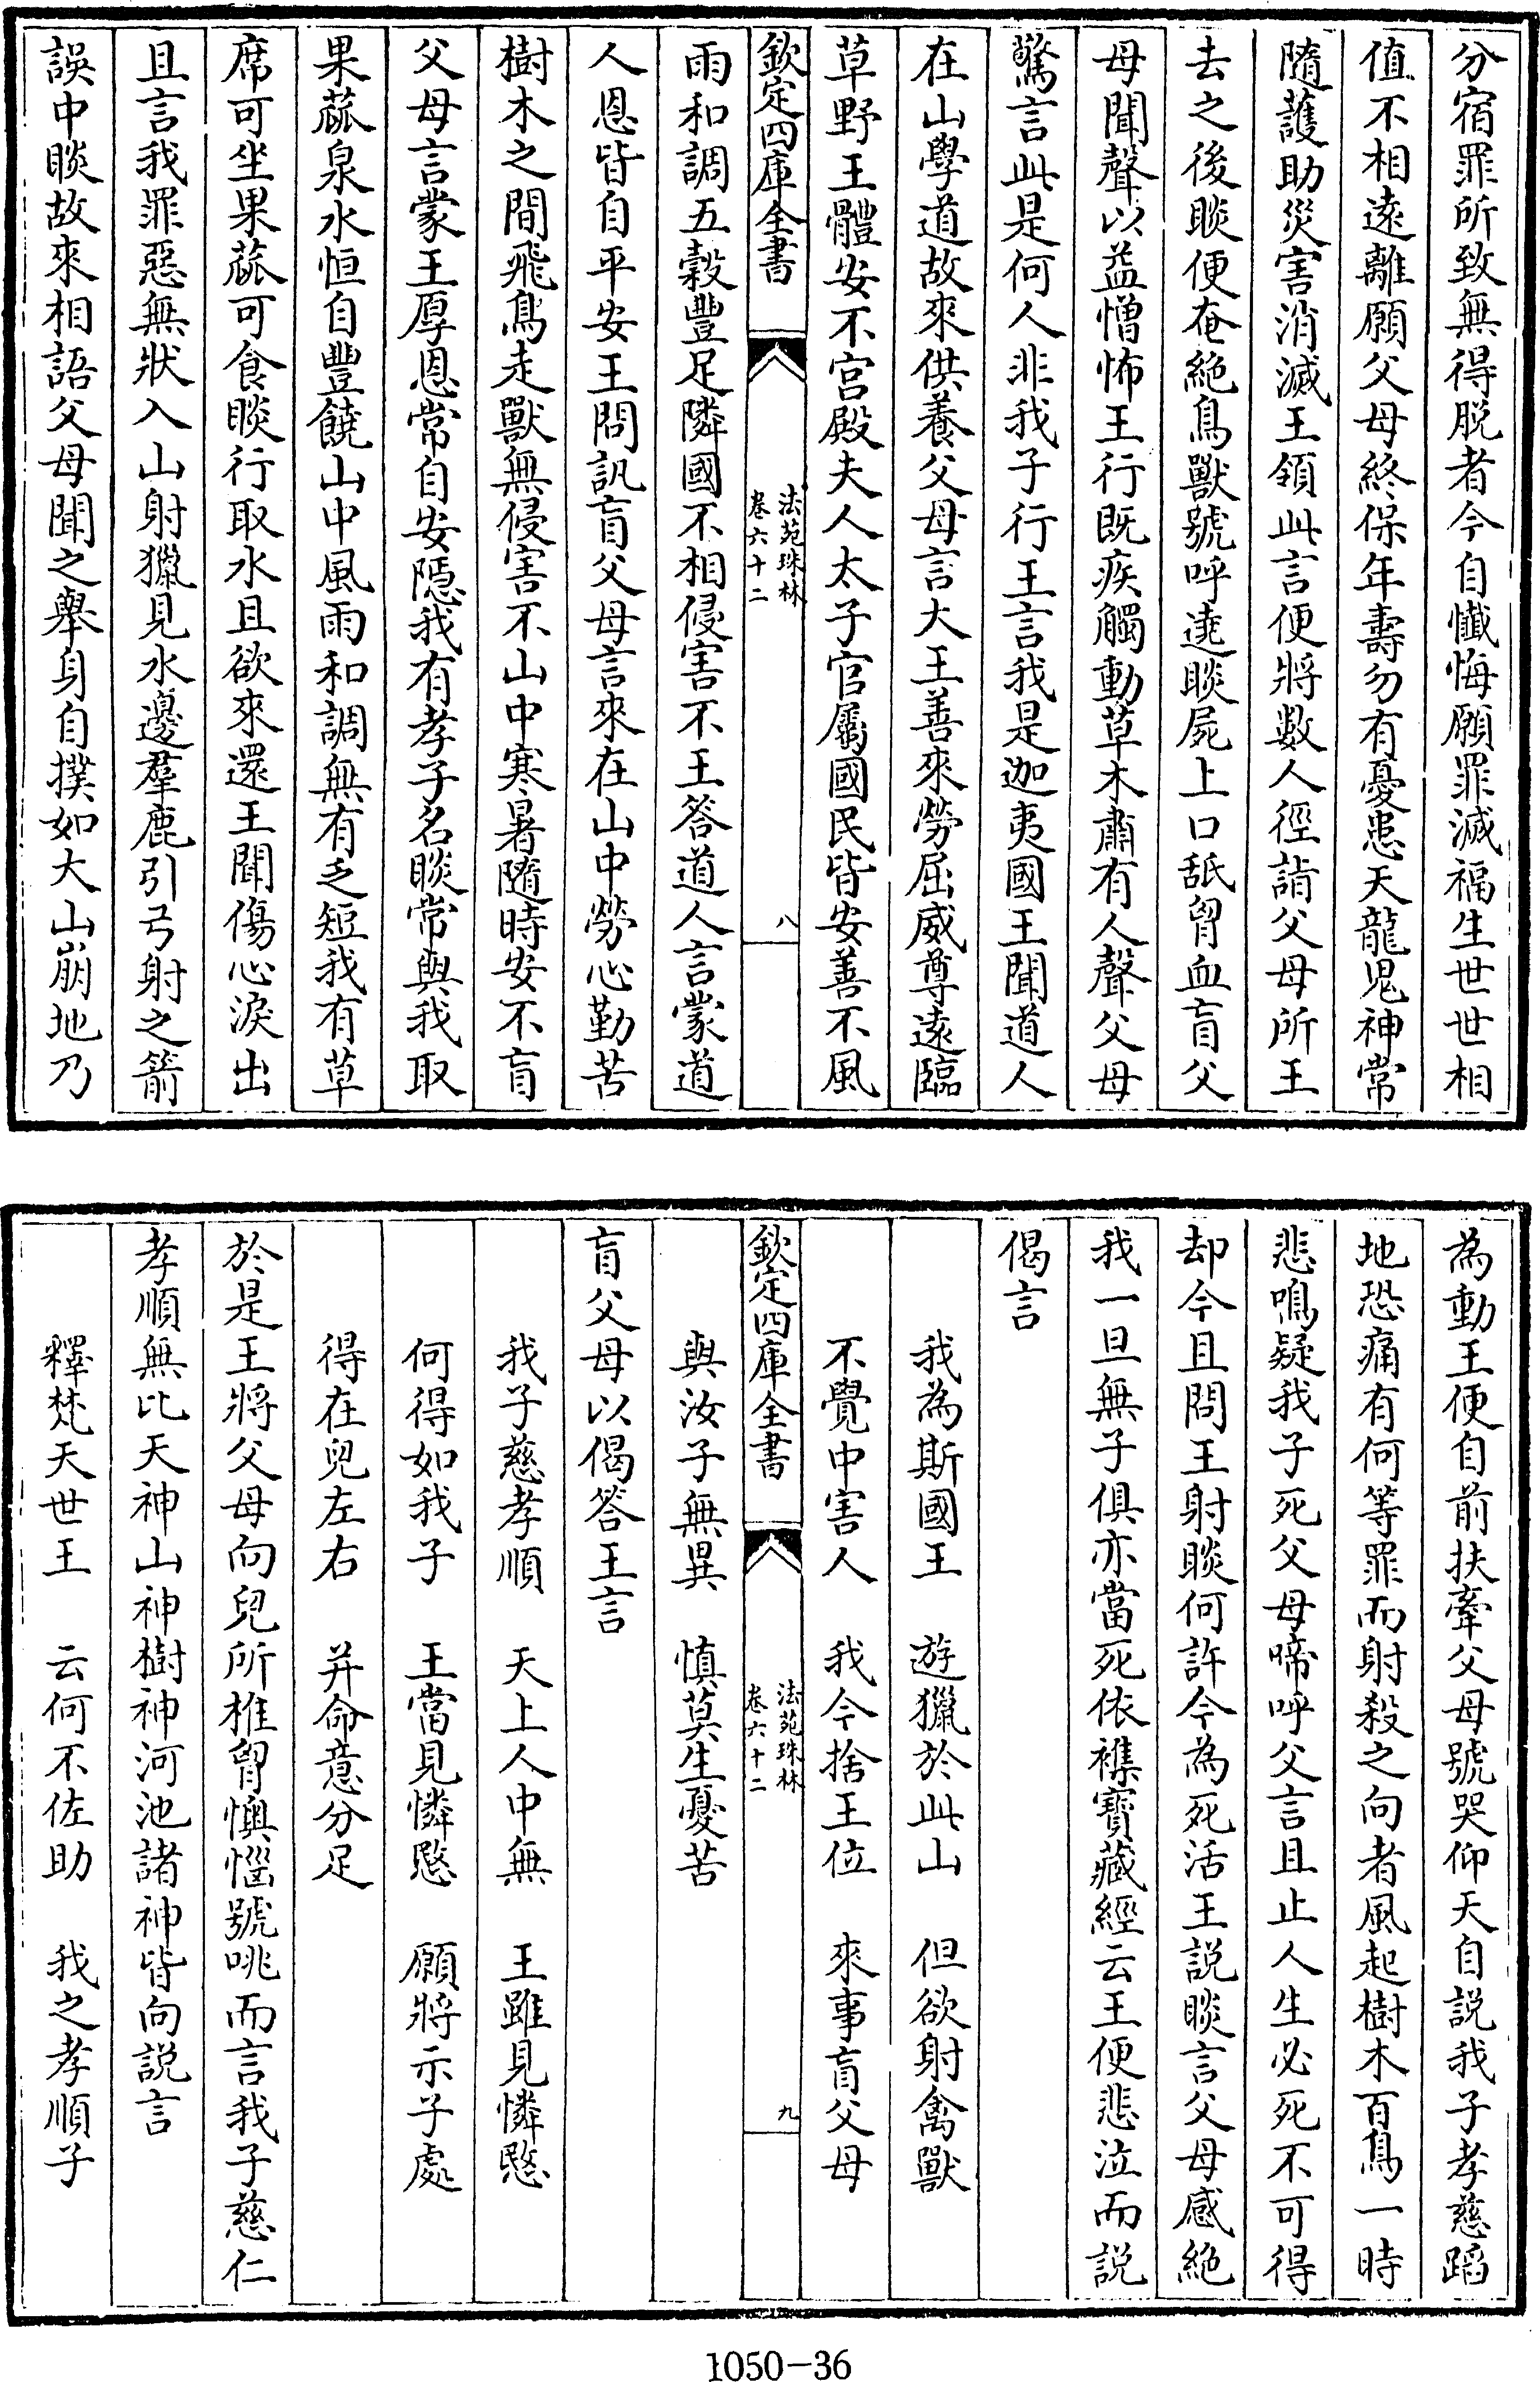 分宿罪所致無得脱者今自懺悔願罪滅福生世世相
值不相遠離願父母終保年壽勿有憂患天龍鬼神常
隨護助災害消滅王領此言便將數人徑詣父母所王
去之後睒便奄絶鳥獸號呼遶睒屍上口舐胷血盲父
母聞聲以益憎怖王行既疾觸動草木肅有人聲父母
驚言此是何人非我子行王言我是迦夷國王聞道人
在山學道故來供養父母言大王善來勞屈威尊遠臨
草野王體安不宫殿夫人太子官屬國民皆安善不風
欽定四庫全書
法苑珠林
卷六十二
八
雨和調五穀豐足隣國不相侵害不王答道人言蒙道
人恩皆自平安王問訊盲父母言來在山中勞心勤苦
樹木之間飛鳥走獸無侵害不山中寒暑隨時安不盲
父母言蒙王厚恩常自安隱我有孝子名睒常與我取
果蓏泉水恒自豐饒山中風雨和調無有乏短我有草
席可坐果蓏可食睒行取水且欲來還王聞傷心淚出
且言我罪惡無狀入山射獵見水邊羣鹿引弓射之箭
誤中睒故來相語父母聞之舉身自撲如大山崩地乃
為動王便自前扶牽父母號哭仰天自説我子孝慈蹈
地恐痛有何等罪而射殺之向者風起樹木百鳥一時
悲鳴疑我子死父母啼呼父言且止人生必死不可得
却今且問王射睒何許今為死活王説睒言父母感絶
我一旦無子俱亦當死依襍寶藏經云王便悲泣而説
偈言
我為斯國王　遊獵於此山　但欲射禽獸
不覺中害人　我今捨王位　來事盲父母
欽定四庫全書
法苑珠林
卷六十二
九
與汝子無異　慎莫生憂苦
盲父母以偈答王言
我子慈孝順　天上人中無　王雖見憐愍
何得如我子　王當見憐愍　願將示子處
得在兒左右　并命意分足
於是王將父母向兒所椎胷懊惱號咷而言我子慈仁
孝順無比天神山神樹神河池諸神皆向説言
釋梵天世王　云何不佐助　我之孝順子
1050-36